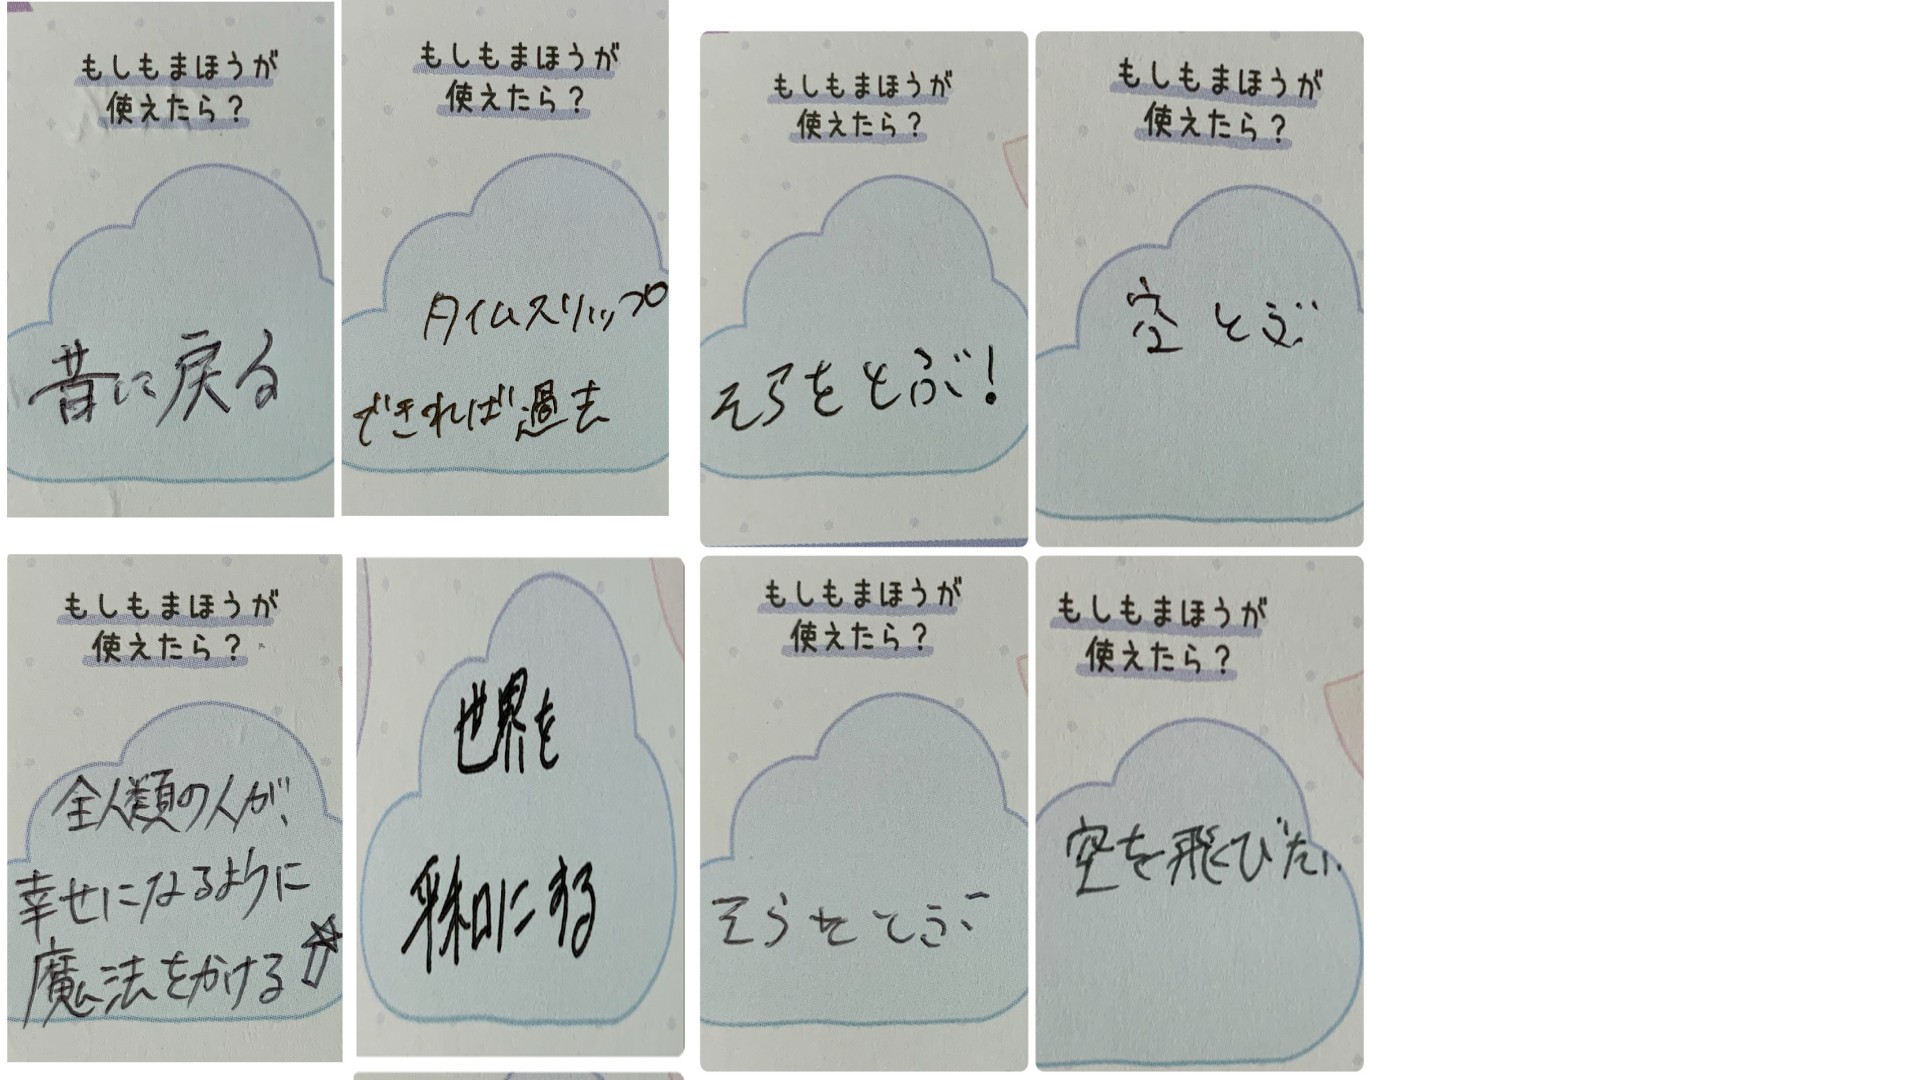 もしもまほうが
使えたら?
昔に戻る
もしもまほうが
使えたら?
タイムスリップ
できれば過去
もしもまほうが
使えたら?
そらをとぶ!
もしもまほうが
使えたら?
空とぶ
もしもまほうが
使えたら?
全人類の人が、
幸せになるように
魔法をかける
世界を
平和にする
もしもまほうが
使えたら?
そらをとぶ
もしもまほうが
使えたら?
空を飛びたい